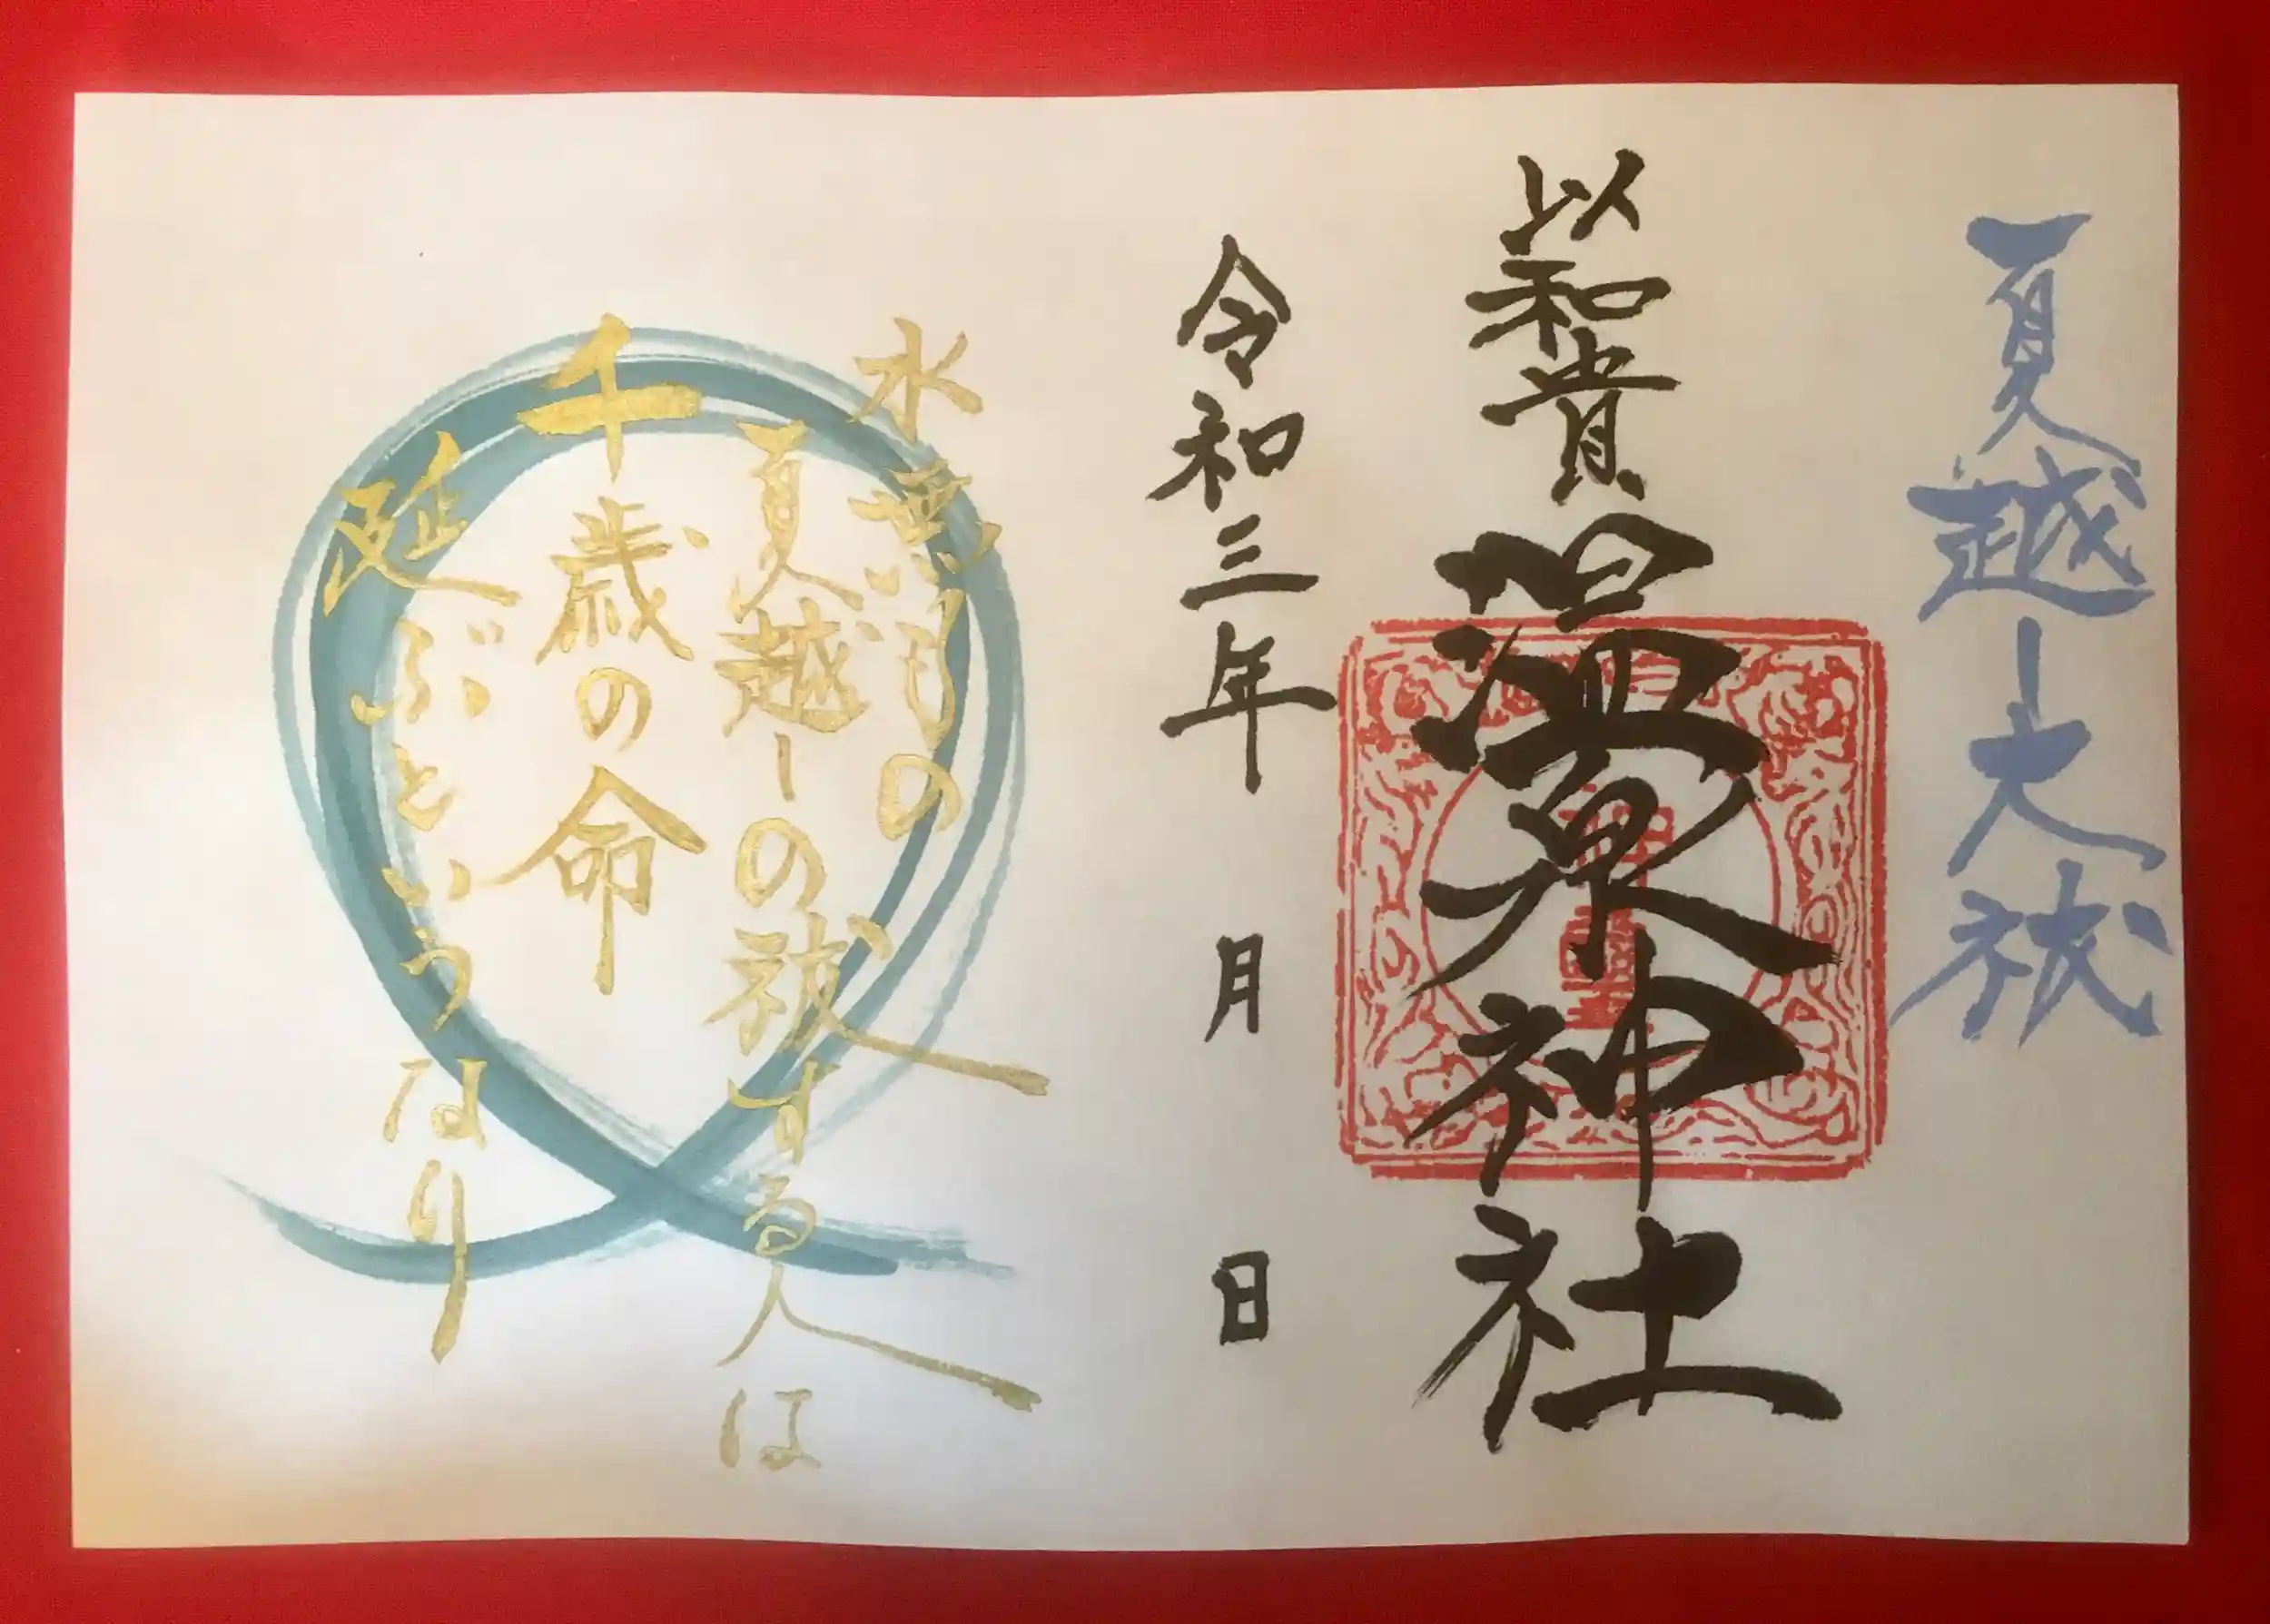 夏越し大祓
以和貴
温泉神社
令和三年 月 日
水無月の
夏越しの祓する人は
千歳の命
延ぶというなり